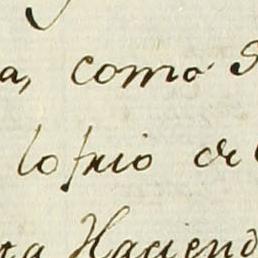 a, como s
lo frio de
ta Haciend